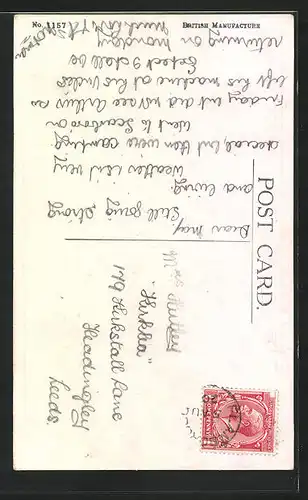 No. 1157
BRITISH MANUFACTURE
POST CARD.
Dear May,
Still going strong
and living.
weather isn't very
special, but then we're camping.
Went to Scarboro on
Friday but did not see Arthur so
left his machine at his Uncles
Expect I shall be
returning on Monday
"Kirklea"
179 Kirkstall Lane
Headingley
Leeds.